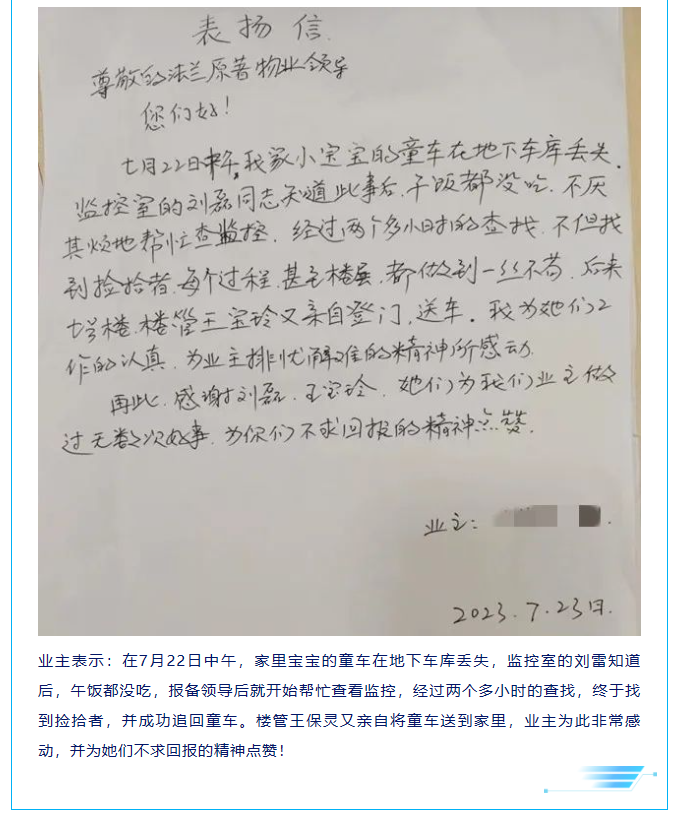 表扬信
尊敬的法兰原著物业领导
您们好！
七月22日中午，我家小宝宝的童车在地下车库丢失。
监控室的刘磊同志知道此事后，午饭都没吃，不厌
其烦地帮忙查监控，经过两个多小时的查找，不但找
到捡拾者，每个过程，甚至楼层，都做到一丝不苟，后来
楼，楼管王宝玲又亲自登门，送车。我为她们工
作的认真，为业主排忧解难的精神所感动。
再此，感谢刘磊、王宝玲，她们为我们业主做
过无数次好事，为你们不求回报的精神点赞。
业主：
2023.7.23日.
业主表示：在7月22日中午，家里宝宝的童车在地下车库丢失，监控室的刘雷知道
后，午饭都没吃，报备领导后就开始帮忙查看监控，经过两个多小时的查找，终于找
到捡拾者，并成功追回童车。楼管王保灵又亲自将童车送到家里，业主为此非常感
动，并为她们不求回报的精神点赞！